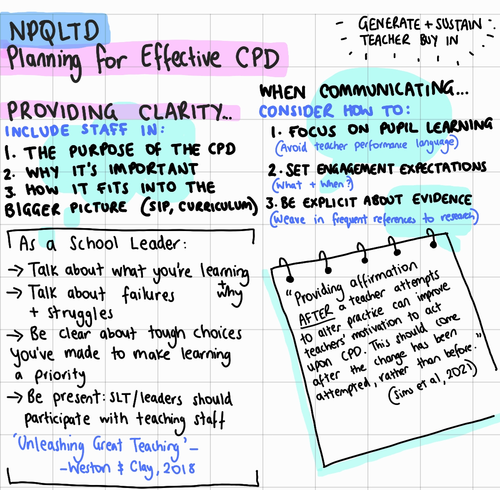 NPQLTD
Planning for Effective CPD
GENERATE + SUSTAIN
TEACHER BUY IN
PROVIDING CLARITY...
INCLUDE STAFF IN:
1. THE PURPOSE OF THE CPD
2. WHY IT'S IMPORTANT
3. HOW IT FITS INTO THE
BIGGER PICTURE (SIP, CURRICULUM)
WHEN COMMUNICATING...
CONSIDER HOW TO:
1. FOCUS ON PUPIL LEARNING
(Avoid teacher performance language)
2. SET ENGAGEMENT EXPECTATIONS
(What + when?)
3. BE EXPLICIT ABOUT EVIDENCE
(Weave in frequent references to research)
As a School Leader:
→ Talk about what you're learning
+ why
→ Talk about failures
+ struggles
→ Be clear about tough choices
you've made to make learning
a priority
→ Be present: SLT/leaders should
participate with teaching staff
'Unleashing Great Teaching' –
– Weston & Clay, 2018
"Providing affirmation
AFTER a teacher attempts
to alter practice can improve
teachers' motivation to act
upon CPD. This should come
after the change has been
attempted, rather than before."
(Sims et al, 2021)